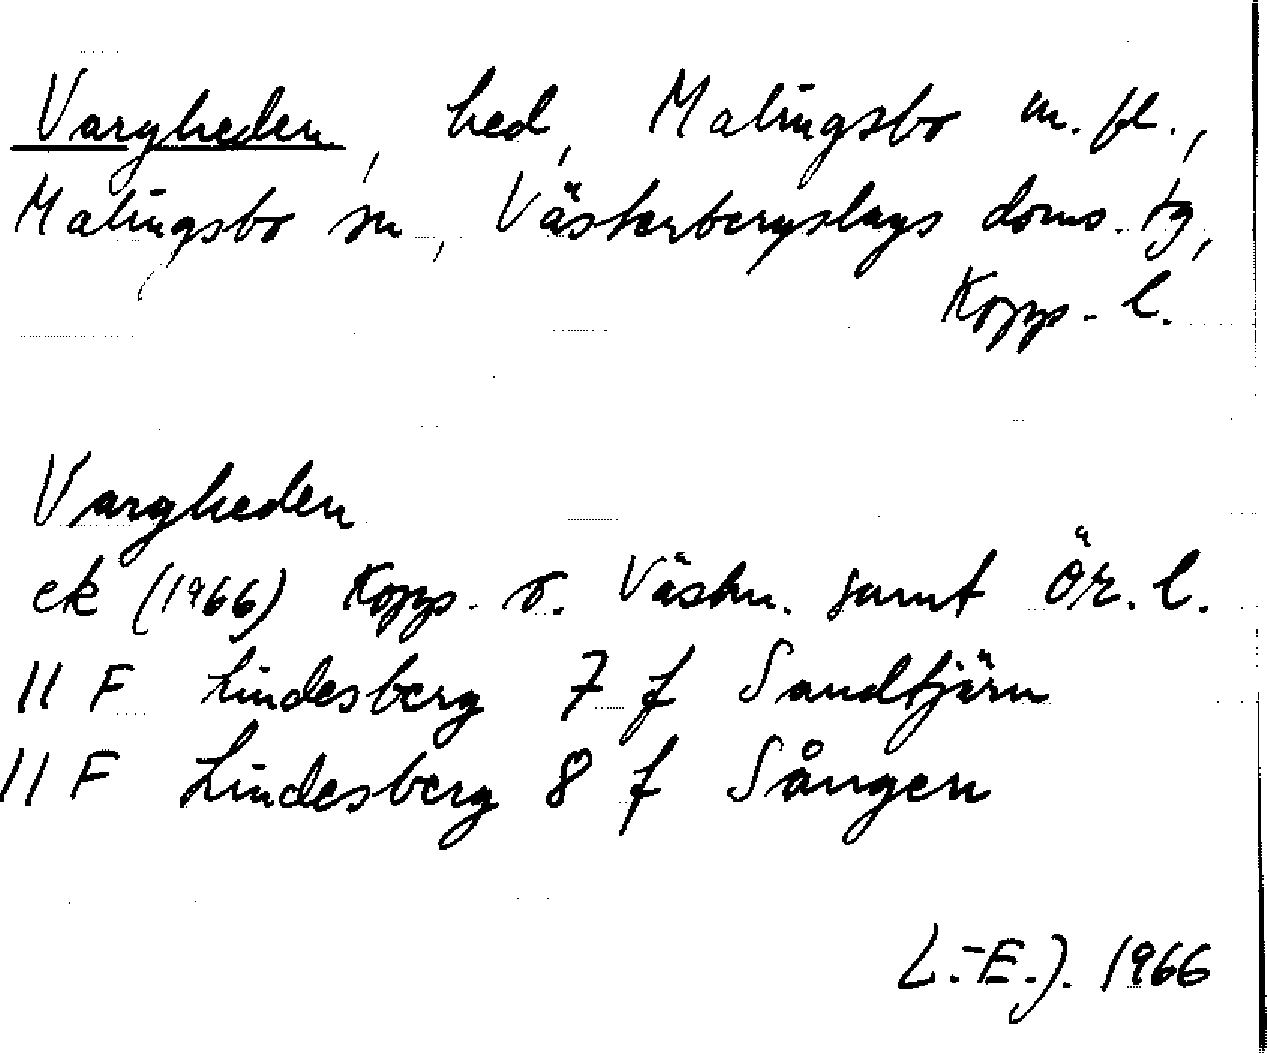 Vargheden, hed, Malingsbo m. fl.,
Malingsbo sn, Västerbergslags doms. tg,
Kopp. l.
Vargheden
ek (1966) Kopp. o. Västm. samt Ör. l.
11 F Lindesberg 7 f Sandtjärn
11 F Lindesberg 8 f Sången
L.-E.J. 1966